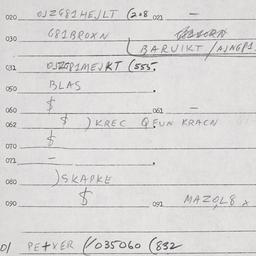 020 OJZG81HEJLT (208 021 —
030 G81BROXN
BARVIKT/AJNGP1.
031 OJZG81MEJKT (555.
050 BLAS
060 $ 061 —
062 $ ) KREC QEUN KRACN
070 $
071 —
080 ) SKAPKE
090 $ 091 MAZOL8 x
01 PETVER (/035060 (832